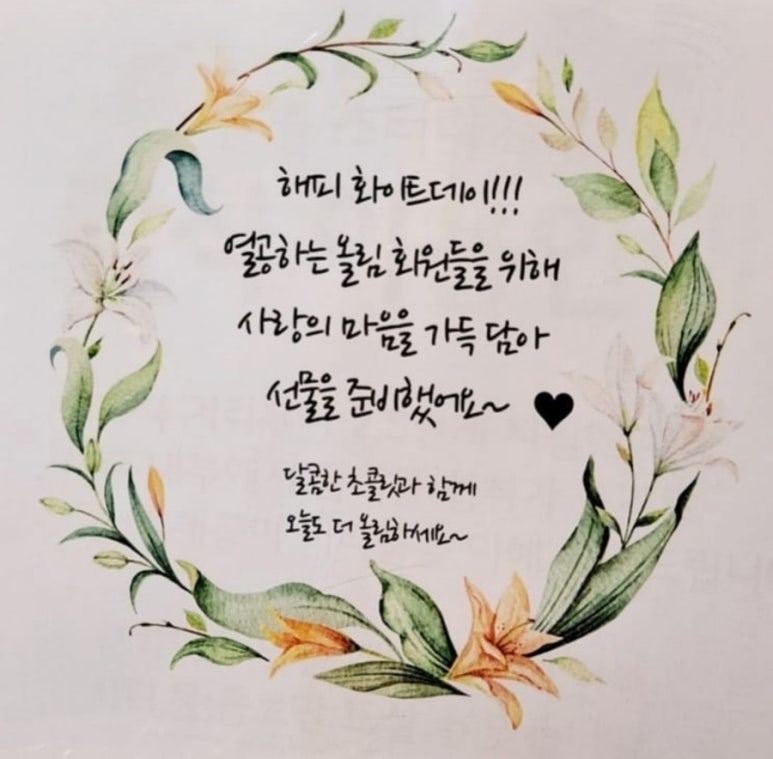 해피 화이트데이!!!
열공하는 올림 회원들을 위해
사랑의 마음을 가득 담아
선물을 준비했어요~ ♥
달콤한 초콜릿과 함께
오늘도 더 올림하세요~